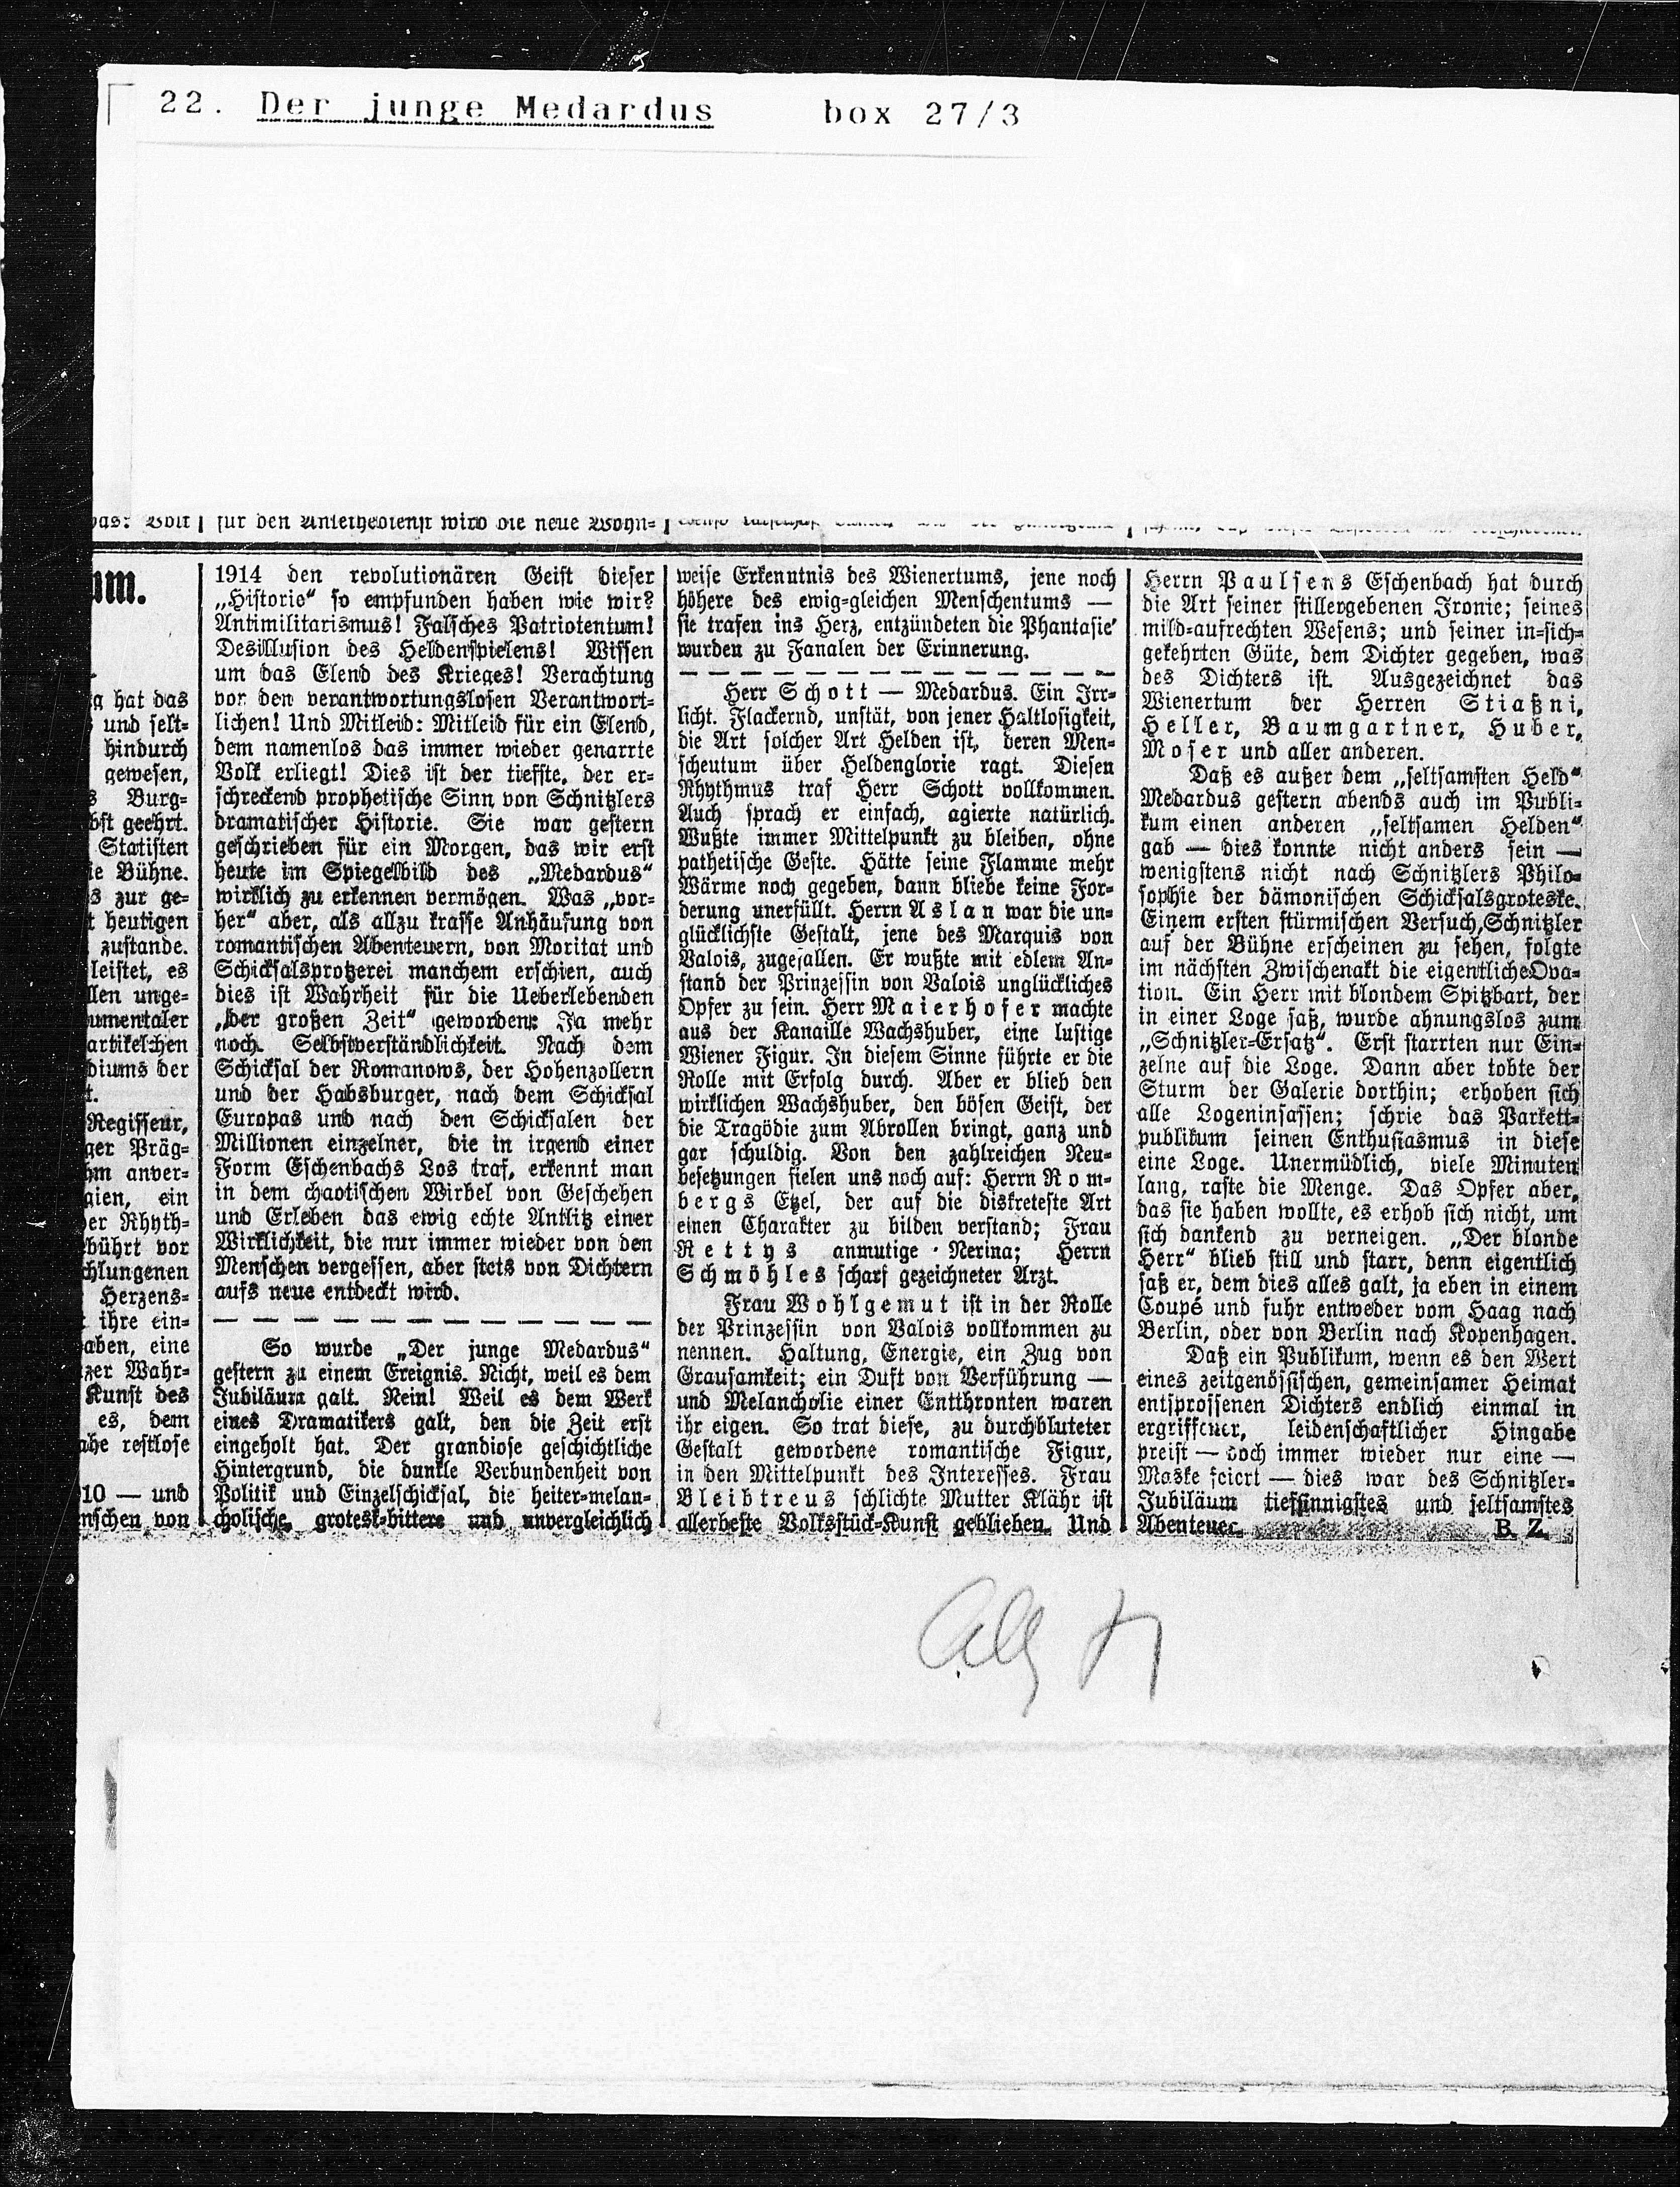 22. Der junge Medardus box 27/3
für den Anleihedienst wird die neue Wohn-
um.
g hat das
und selt-
hindurch
gewesen,
Burg-
bst geehrt.
Statisten
ie Bühne.
s zur ge-
t heutigen
zustande.
leistet, es
llen unge-
umentaler
artikelchen
diums der
t.
Regisseur,
ger Präg-
hm anver-
aien, ein
er Rhyth-
ebührt vor
chlungenen
Herzens-
ihre ein-
aben, eine
zer Wahr-
Kunst des
es, dem
ahe restlose
10 — und
nschen von
1914 den revolutionären Geist dieser
„Historie“ so empfunden haben wie wir?
Antimilitarismus! Falsches Patriotentum!
Desillusion des Heldenspielens! Wissen
um das Elend des Krieges! Verachtung
vor den verantwortungslosen Verantwort-
lichen! Und Mitleid: Mitleid für ein Elend,
dem namenlos das immer wieder genarrte
Volk erliegt! Dies ist der tiefste, der er-
schreckend prophetische Sinn von Schnitzlers
dramatischer Historie. Sie war gestern
geschrieben für ein Morgen, das wir erst
heute im Spiegelbild des „Medardus“
wirklich zu erkennen vermögen. Was „vor-
her“ aber, als allzu krasse Anhäufung von
romantischen Abenteuern, von Moritat und
Schicksalsprotzerei manchem erschien, auch
dies ist Wahrheit für die Ueberlebenden
„der großen Zeit“ geworden: Ja mehr
noch. Selbstverständlichkeit. Nach dem
Schicksal der Romanows, der Hohenzollern
und der Habsburger, nach dem Schicksal
Europas und nach den Schicksalen der
Millionen einzelner, die in irgend einer
Form Eschenbachs Los traf, erkennt man
in dem chaotischen Wirbel von Geschehen
und Erleben das ewig echte Antlitz einer
Wirklichkeit, die nur immer wieder von den
Menschen vergessen, aber stets von Dichtern
aufs neue entdeckt wird.
— — — — — — — — — — — — —
So wurde „Der junge Medardus“
gestern zu einem Ereignis. Nicht, weil es dem
Jubiläum galt. Nein! Weil es dem Werk
eines Dramatikers galt, den die Zeit erst
eingeholt hat. Der grandiose geschichtliche
Hintergrund, die dunkle Verbundenheit von
Politik und Einzelschicksal, die heiter-melan-
cholische, grotesk-bittere und unvergleichlich
weise Erkenntnis des Wienertums, jene noch
höhere des ewig-gleichen Menschentums —
sie trafen ins Herz, entzündeten die Phantasie'
wurden zu Fanalen der Erinnerung.
— — — — — — — — — — — — —
Herr Schott — Medardus. Ein Irr-
licht. Flackernd, unstät, von jener Haltlosigkeit,
die Art solcher Art Helden ist, deren Men-
scheutum über Heldenglorie ragt. Diesen
Rhythmus traf Herr Schott vollkommen.
Auch sprach er einfach, agierte natürlich.
Wußte immer Mittelpunkt zu bleiben, ohne
pathetische Geste. Hätte seine Flamme mehr
Wärme noch gegeben, dann bliebe keine For-
derung unerfüllt. Herrn Aslan war die un-
glücklichste Gestalt, jene des Marquis von
Valois, zugefallen. Er wußte mit edlem An-
stand der Prinzessin von Valois unglückliches
Opfer zu sein. Herr Maierhofer machte
aus der Kanaille Wachshuber, eine lustige
Wiener Figur. In diesem Sinne führte er die
Rolle mit Erfolg durch. Aber er blieb den
wirklichen Wachshuber, den bösen Geist, der
die Tragödie zum Abrollen bringt, ganz und
gar schuldig. Von den zahlreichen Neu-
besetzungen fielen uns noch auf: Herrn Rom-
bergs Etzel, der auf die diskreteste Art
einen Charakter zu bilden verstand; Frau
Rettys anmutige Nerina; Herrn
Schmöhles scharf gezeichneter Arzt.
Frau Wohlgemut ist in der Rolle
der Prinzessin von Valois vollkommen zu
nennen. Haltung, Energie, ein Zug von
Grausamkeit; ein Duft von Verführung —
und Melancholie einer Entthronten waren
ihr eigen. So trat diese, zu durchbluteter
Gestalt gewordene romantische Figur,
in den Mittelpunkt des Interesses. Frau
Bleibtreus schlichte Mutter Klähr ist
allerbeste Volksstück-Kunst geblieben. Und
Herrn Paulsens Eschenbach hat durch
die Art seiner stillergebenen Ironie; seines
mild-aufrechten Wesens; und seiner in-sich-
gekehrten Güte, dem Dichter gegeben, was
des Dichters ist. Ausgezeichnet das
Wienertum der Herren Stiaßni,
Heller, Baumgartner, Huber,
Moser und aller anderen.
Daß es außer dem „seltsamsten Held“
Medardus gestern abends auch im Publi-
kum einen anderen „seltsamen Helden“
gab — dies konnte nicht anders sein —
wenigstens nicht nach Schnitzlers Philo-
sophie der dämonischen Schicksalsgroteske.
Einem ersten stürmischen Versuch, Schnitzler
auf der Bühne erscheinen zu sehen, folgte
im nächsten Zwischenakt die eigentliche Ova-
tion. Ein Herr mit blondem Spitzbart, der
in einer Loge saß, wurde ahnungslos zum
„Schnitzler-Ersatz“. Erst starrten nur Ein-
zelne auf die Loge. Dann aber tobte der
Sturm der Galerie dorthin; erhoben sich
alle Logeninsassen; schrie das Parkett-
publikum seinen Enthusiasmus in diese
eine Loge. Unermüdlich, viele Minuten
lang, raste die Menge. Das Opfer aber,
das sie haben wollte, es erhob sich nicht, um
sich dankend zu verneigen. „Der blonde
Herr“ blieb still und starr, denn eigentlich
saß er, dem dies alles galt, ja eben in einem
Coupé und fuhr entweder vom Haag nach
Berlin, oder von Berlin nach Kopenhagen.
Daß ein Publikum, wenn es den Wert
eines zeitgenössischen, gemeinsamer Heimat
entsprossenen Dichters endlich einmal in
ergriffener, leidenschaftlicher Hingabe
preist — doch immer wieder nur eine —
Maske feiert — dies war des Schnitzler-
Jubiläum tiefsinnigstes und seltsamstes
Abenteuer. B. Z.